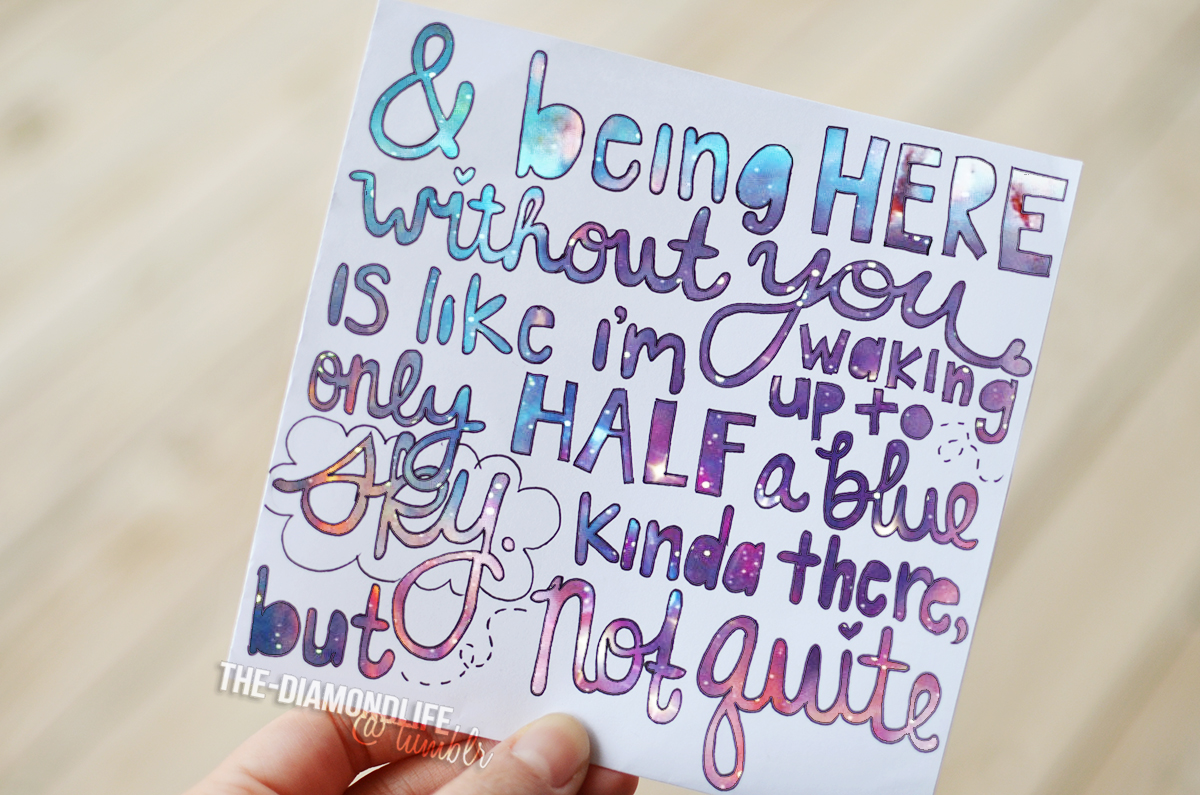 & being HERE
without you
IS like i'm waking
up to
only HALF a blue
sky. kinda there,
but Not quite
THE-DIAMONDLIFE
@tumblr